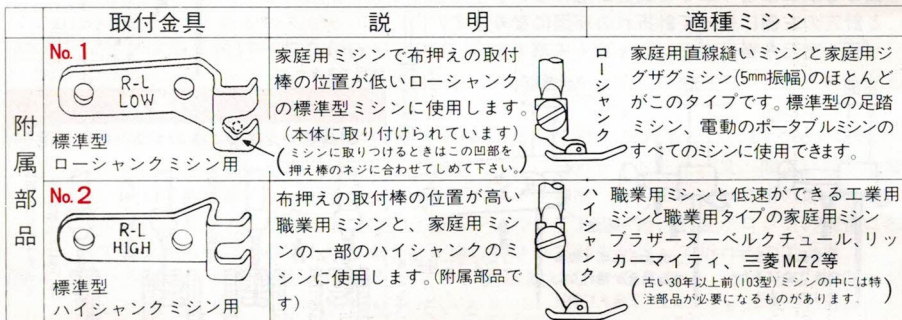 取付金具
説明
適種ミシン
附属部品
No.1
R-L
LOW
標準型
ローシャンクミシン用
家庭用ミシンで布押えの取付
棒の位置が低いローシャンク
の標準型ミシンに使用します。
(本体に取り付けられています)
(ミシンに取りつけるときはこの凹部を
押え棒のネジに合わせてしめて下さい。)
ローシャンク
家庭用直線縫いミシンと家庭用ジ
グザグミシン(5mm振幅)のほとんど
がこのタイプです。標準型の足踏
ミシン、電動のポータブルミシンの
すべてのミシンに使用できます。
No.2
R-L
HIGH
標準型
ハイシャンクミシン用
布押えの取付棒の位置が高い
職業用ミシンと、家庭用ミシ
ンの一部のハイシャンクのミ
シンに使用します。(附属部品で
す)
ハイシャンク
職業用ミシンと低速ができる工業用
ミシンと職業用タイプの家庭用ミシン
ブラザーヌーベルクチュール、リッ
カーマイティ、三菱MZ2等
(古い30年以上前(103型)ミシンの中には特
注部品が必要になるものがあります.)